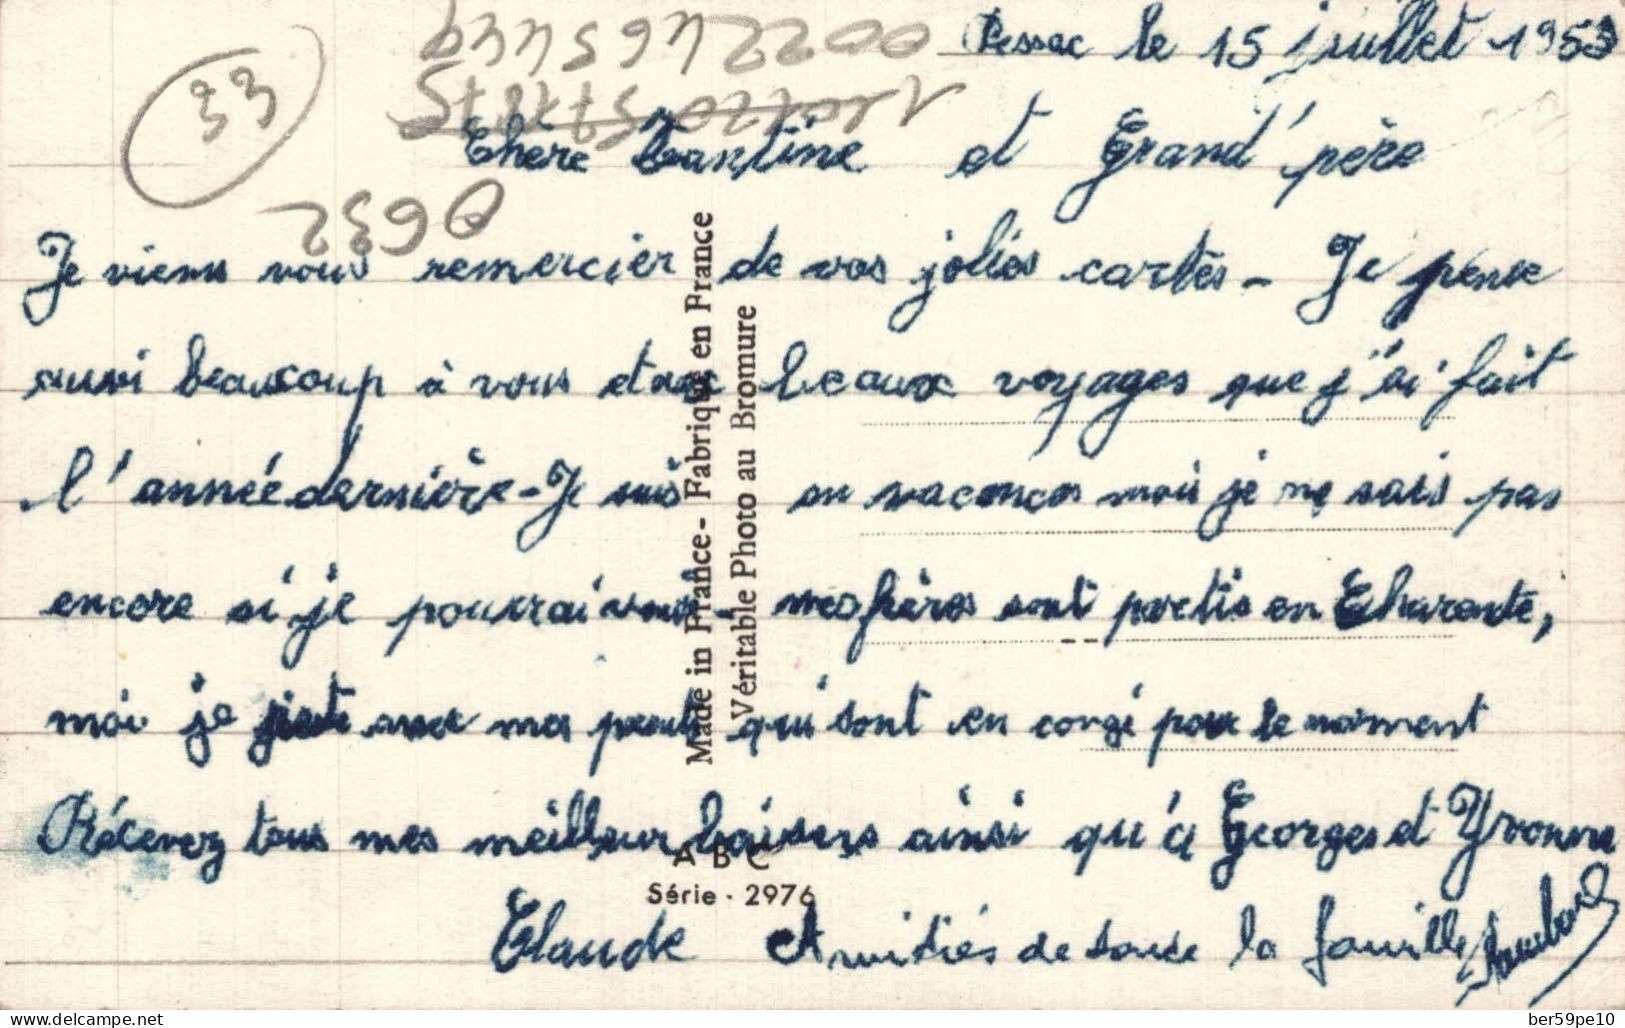 Pessac le 15 juillet 1953
33
0022465449
Chère Tantine et Grand'père
0632
Je viens vous remercier de vos jolies cartes - Je pense
aussi beaucoup à vous et aux beaux voyages que j'ai fait
l'année dernière - Je suis en vacances mais je ne sais pas
encore si je pourrai venir - mes frères sont partis en Charente,
moi je avec mes parents qui sont en congé pour le moment
Récevez tous mes meilleur baisers ainsi qu'à Georges et Yvonne
Claude Amitiés de toute la famille
Made in France - Fabriqué en France
Véritable Photo au Bromure
A B C
Série · 2976
ber59pe10